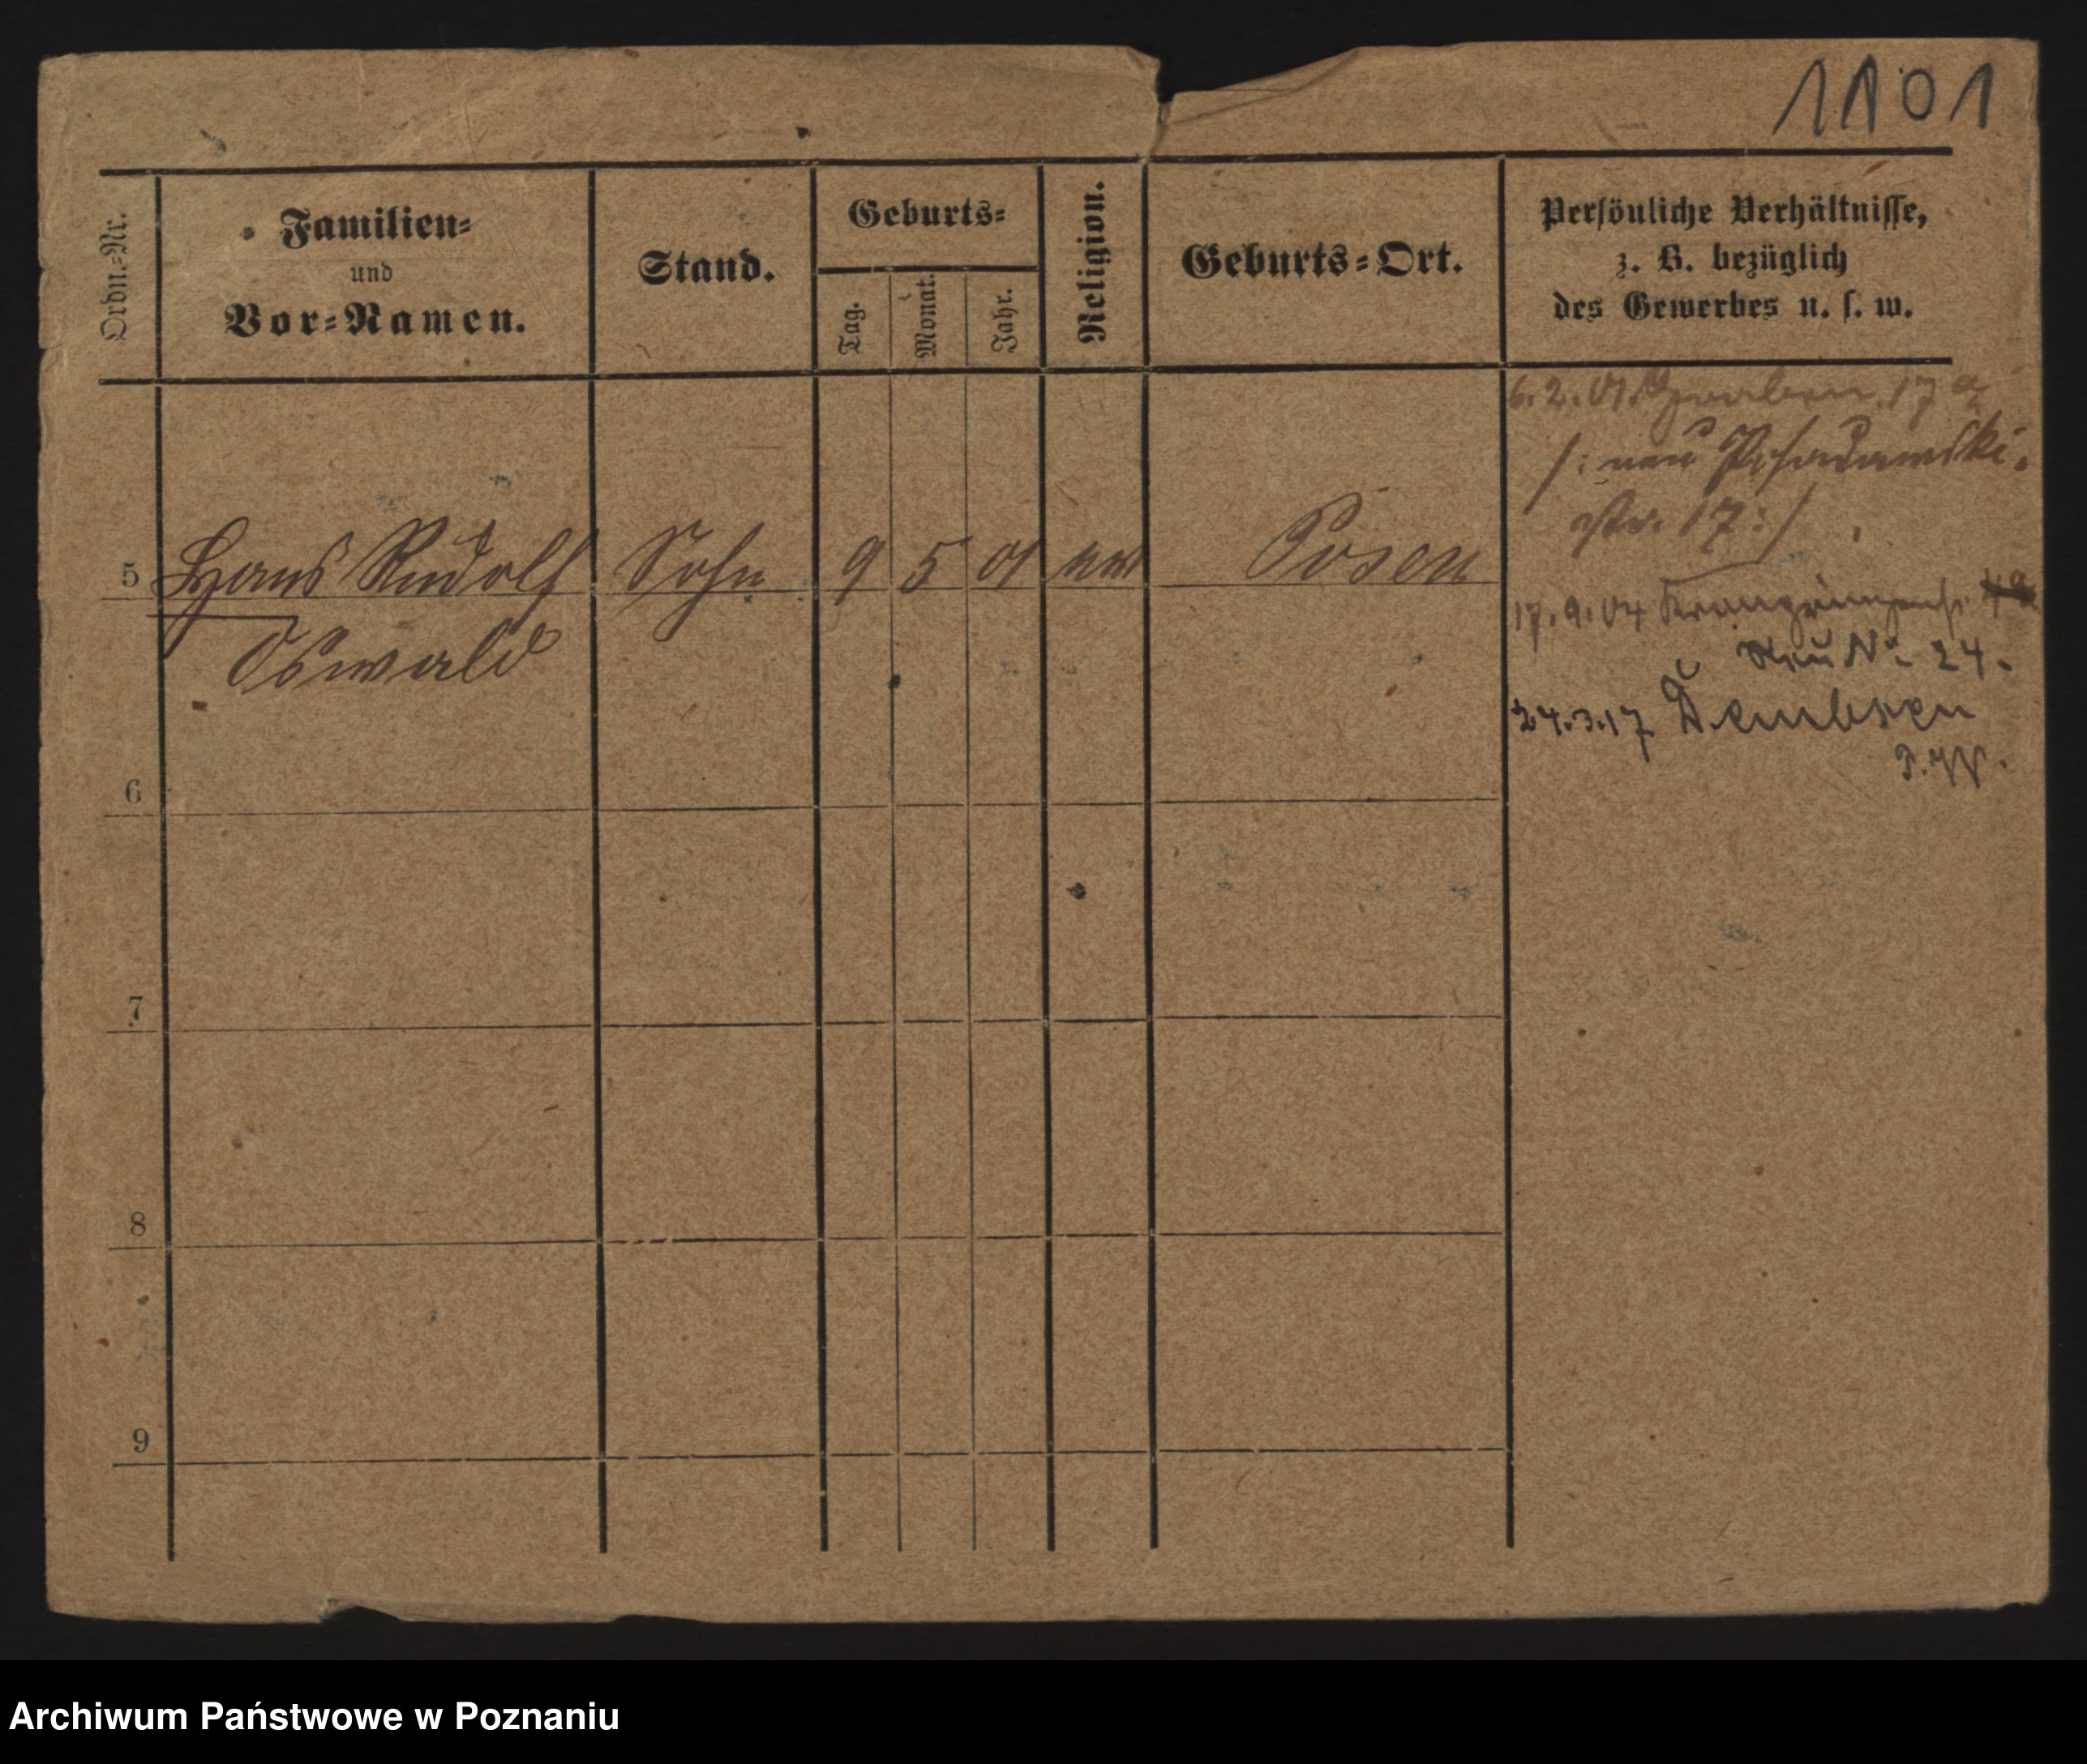 1101
Ordn.-Nr.
Familien-
und
Vor-Namen.
Stand.
Geburts-
Tag.
Monat.
Jahr.
Religion.
Geburts-Ort.
Persönliche Verhältnisse,
z. B. bezüglich
des Gewerbes u. s. w.
6.2.01. 17a
/: neu
str. 17 :/
5 Hans Rudolf Sohn 9 5 01 Posen
Oswald
17.9.04 Kronprinzenstr.
Neu No 24.
24.3.17 Dembsen
P. W.
6
7
8
9
Archiwum Państwowe w Poznaniu